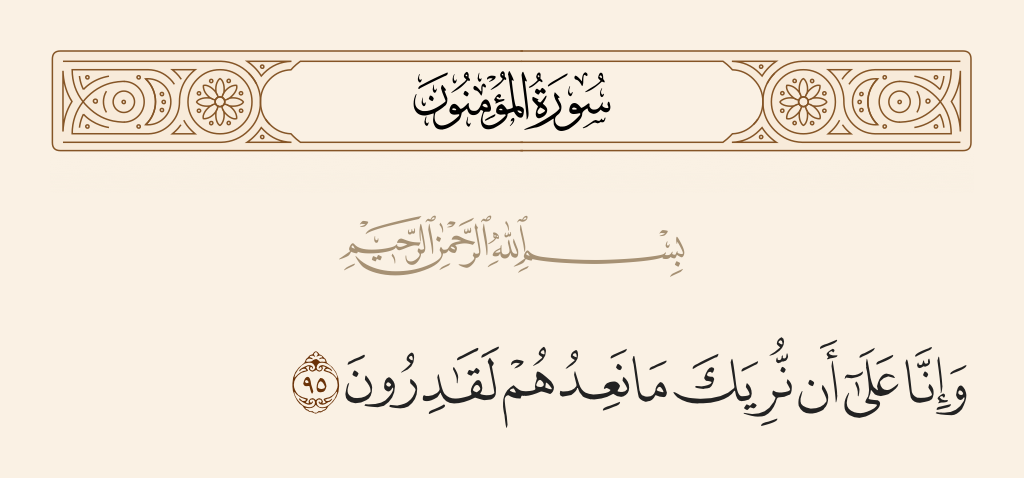 سُورَةُ المُؤْمِنُونَ
بِسْمِ ٱللَّهِ ٱلرَّحْمَٰنِ ٱلرَّحِيمِ
وَإِنَّا عَلَىٰٓ أَن نُّرِيَكَ مَا نَعِدُهُمْ لَقَـٰدِرُونَ ٩٥